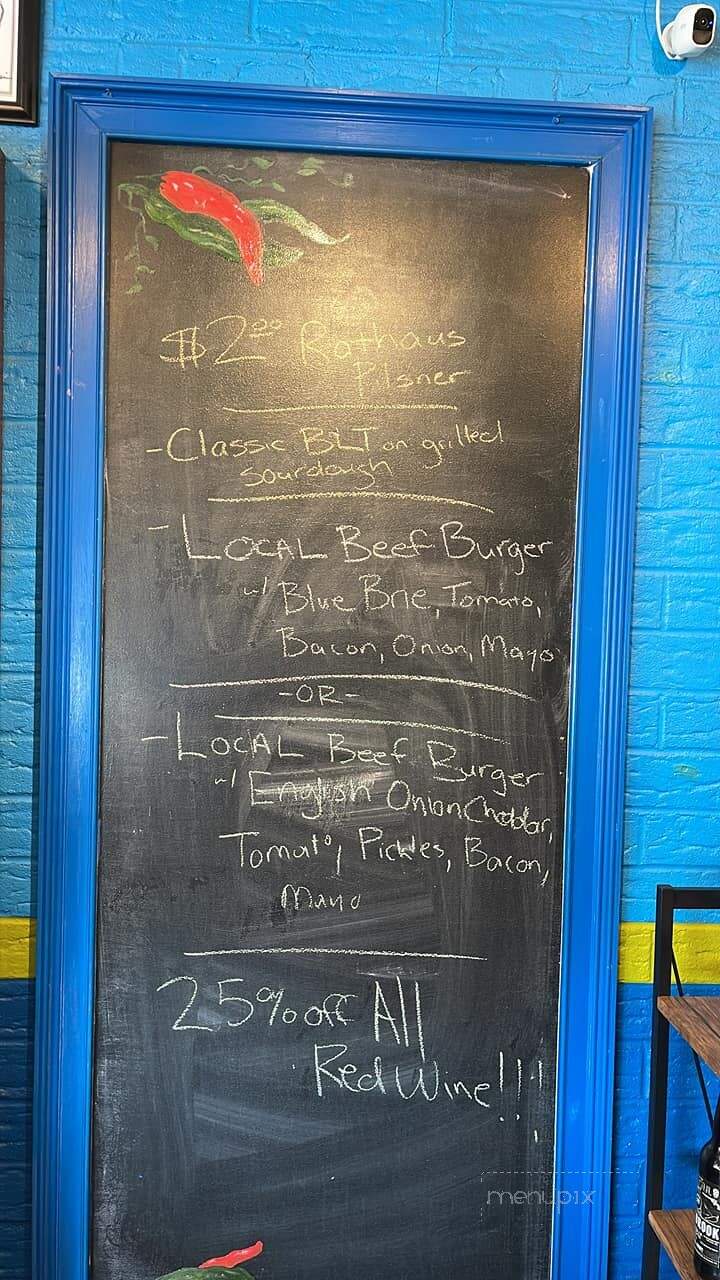 $2.00 Rothaus
Pilsner
- Classic BLT on grilled
sourdough
- LOCAL Beef Burger
w/ Blue Brie, Tomato,
Bacon, Onion, Mayo
- OR -
- LOCAL Beef Burger
w/ English Onion Cheddar,
Tomato, Pickles, Bacon,
Mayo
25% off All
Red Wine!!!
menupix